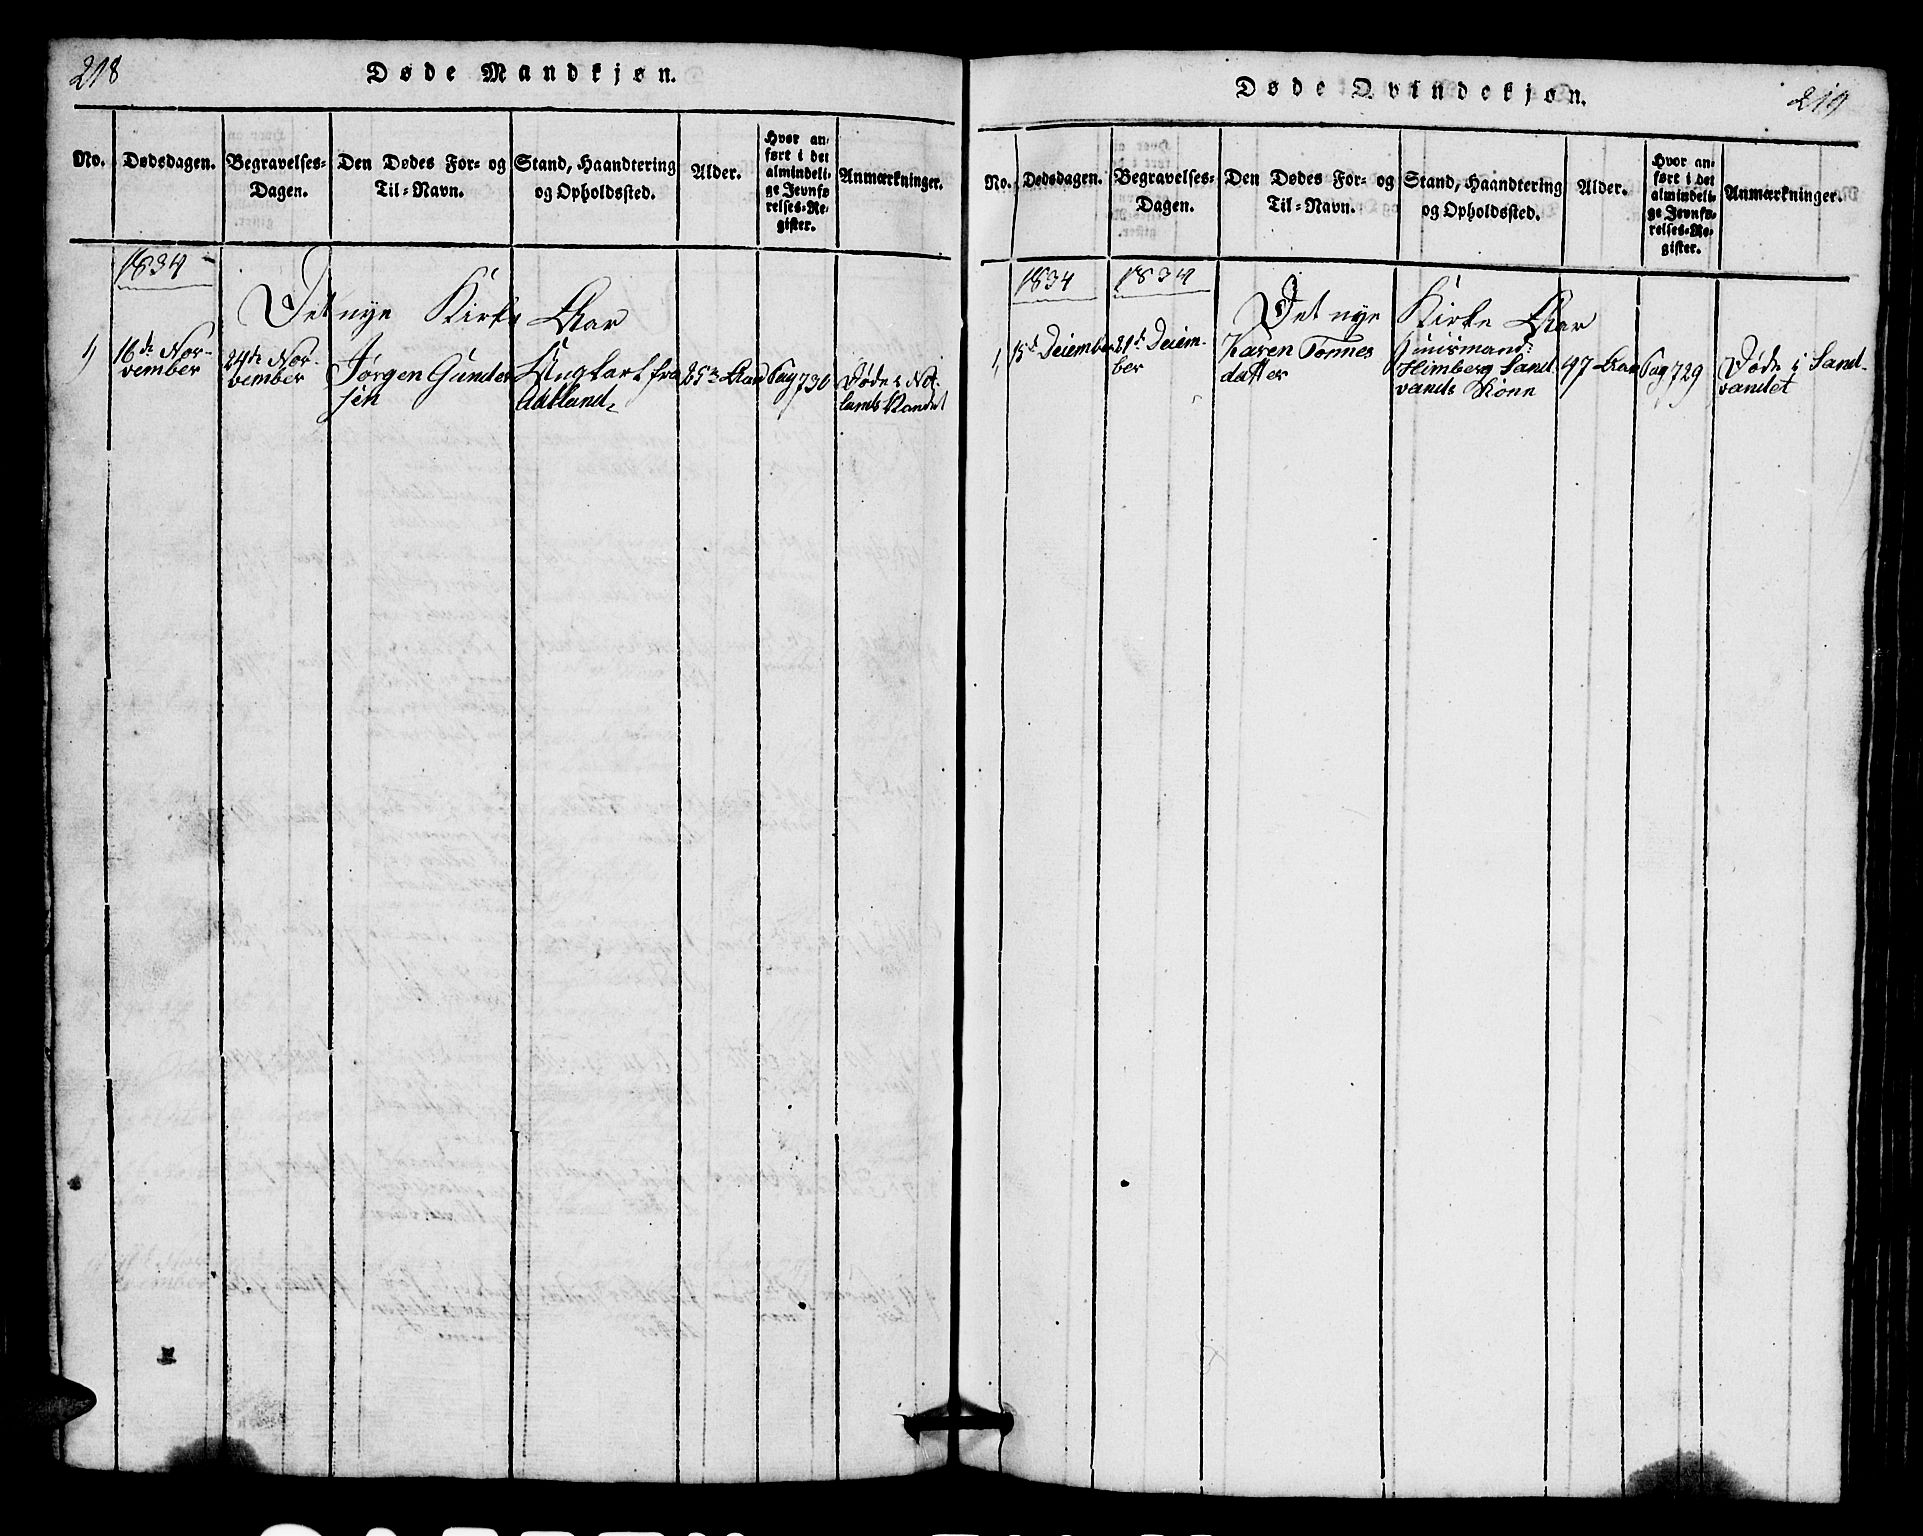 218
Døde Mandkjøn.
No.
Dødsdagen.
Begravelses-
Dagen.
Den Dødes For- og
Til-Navn.
Stand, Haandtering
og Opholdssted.
Alder.
Hvor an-
ført i det
almindeli-
ge Jevnfø-
relses-Re-
gister.
Anmærkninger.
1834
Det nye Kirke Aar
1)
16de No-
vember
24de No-
vember
Jørgen Gunder
sen
Ungkarl fra
25 Aar
Pag 730
Døde i
Vandet
219
Døde Qvindekjøn.
No.
Dødsdagen.
Begravelses-
Dagen.
Den Dødes For- og
Til-Navn.
Stand, Haandtering
og Opholdssted.
Alder.
Hvor an-
ført i det
almindeli-
ge Jevnfø-
relses-Re-
gister.
Anmærkninger.
1834
1834
Det nye Kirke Aar
1,
15d Decmber
21d Decem-
ber
Karen Tønnes
datter
Huusmand
Himberg Sand
vands Kone
47 Aar
Pag 729
Døde i Sand-
vandet